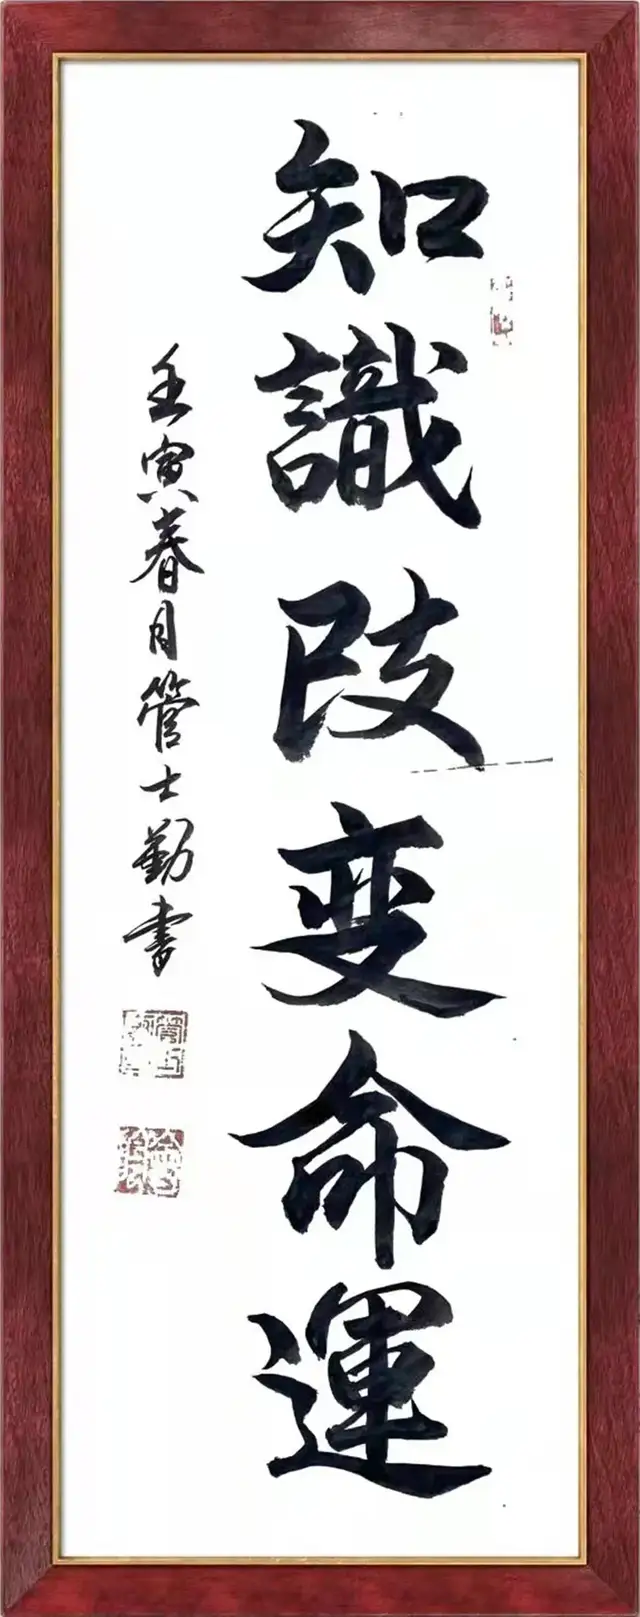 知識改变命運
壬寅春月管士勤書